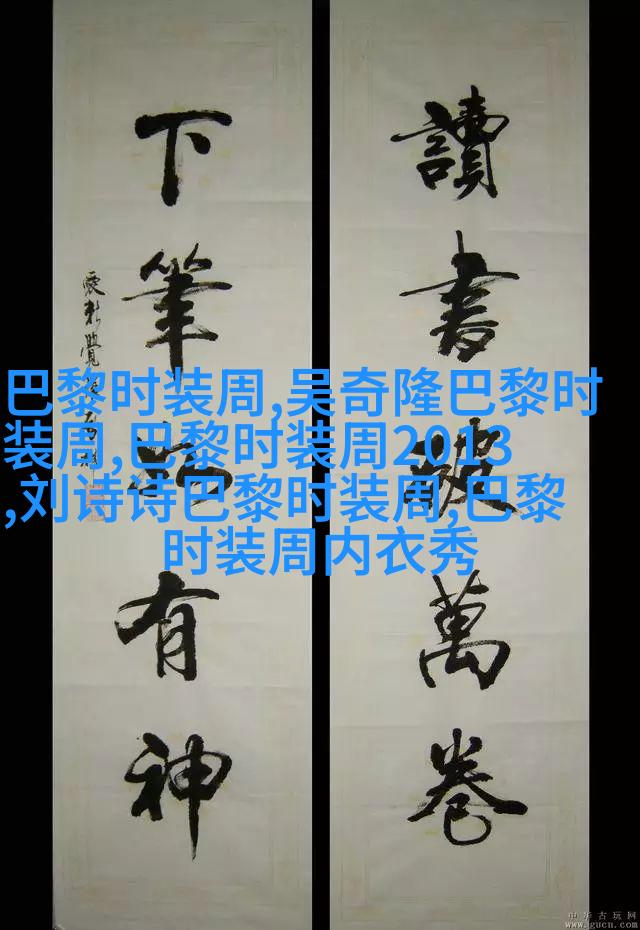 讀書破萬卷
下筆如有神
巴黎时装周,吴奇隆巴黎时
装周,巴黎时装周2013
,刘诗诗巴黎时装周,巴黎
时装周内衣秀
中华古玩网
www.gucn.com